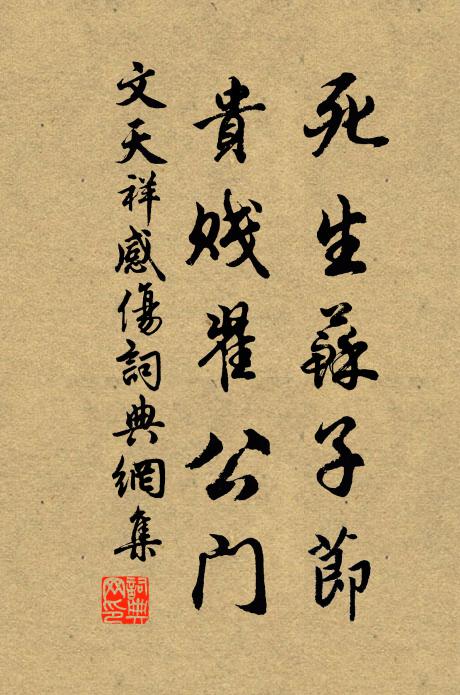 死生蘇子節
貴賤翟公門
文天祥感傷詞典網集
詞典网印